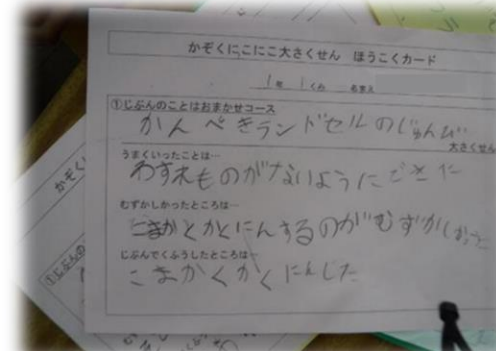 かぞくにこにこ大さくせん ほうこくカード
1年 1くみ 名まえ
①じぶんのことはおまかせコース
かんぺきランドセルのじゅんび
大さくせん
うまくいったことは…
わすれものがないようにできた
むずかしかったところは…
こまかくかくにんするのがむずかしかった
じぶんでくふうしたところは…
こまかくかくにんした
かぞく
①じぶんの